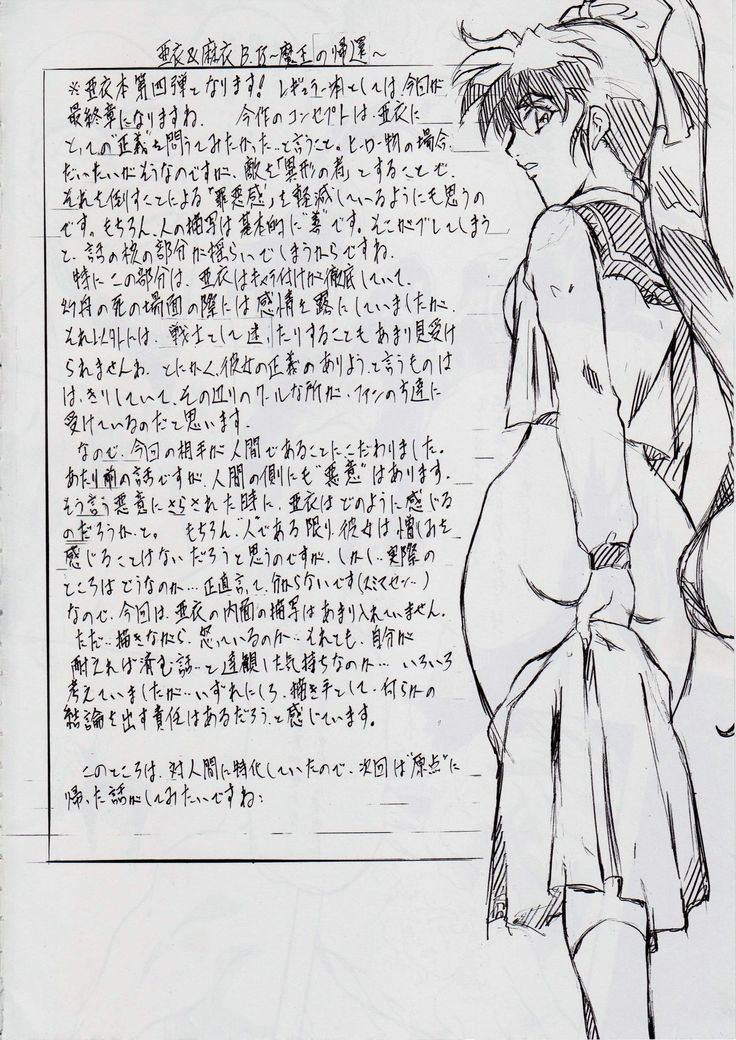 亜衣&麻衣 B.B~魔王「の帰還~
※亜衣本第四弾となります! レギュラー本としては、今回が
最終章になりますね. 今作のコンセプトは、亜衣に
とっての"正義"を問うてみたかった…と言うこと。ヒーロー物の場合、
だいたいがそうなのですが、敵を「異形の者」とすることで、
それを倒すことによる「罪悪感」を軽減しているようにも思うの
です。もちろん、人の描写は基本的に"善"です。そこがブレてしまう
と、話の核の部分が揺らいでしまうからですね.
特にこの部分は、亜衣はキャラ付けが徹底していて、
幻舟の死の場面の際には感情を露にしていましたが、
それ以外には、戦士として迷ったりすることもあまり見受け
られませんね. とにかく、彼女の正義のありようと言うものは
はっきりしていて、その辺りのクールな所が、ファンの方達に
受けているのだと思います.
なので、今回の相手が人間であることにこだわりました。
あたり前の話ですが、人間の側にも"悪意"はあります.
そう言う悪意にさらされた時に、亜衣はどのように感じる
のだろうか、と。 もちろん、"人"である限り、彼女は憎しみを
感じることはないだろうと思うのですが、しかし…実際の
ところはどうなのか…正直言って、分からないです(スミマセン…)
なので、今回は、亜衣の内面の描写はあまり入れていません.
ただ…描きながら、怒っているのか…それとも、自分が
耐えれば済む話…と達観した気持ちなのか… いろいろ
考えていましたが…いずれにしろ、描き手として、何らかの
結論を出す責任はあるだろう、と感じています。
このところは、対人間に特化していたので、次回は"原点"に
帰った話がしてみたいですね: